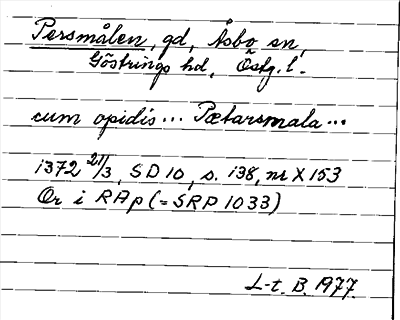 Persmålen, gd, Åsbo sn,
Göstrings hd, Östg. l.
cum opidis... Pætarsmala...
1372 21/3, SD 10, s. 138, nr X 153
Or i RAp (= SRP 1033)
L-t. B. 1977.